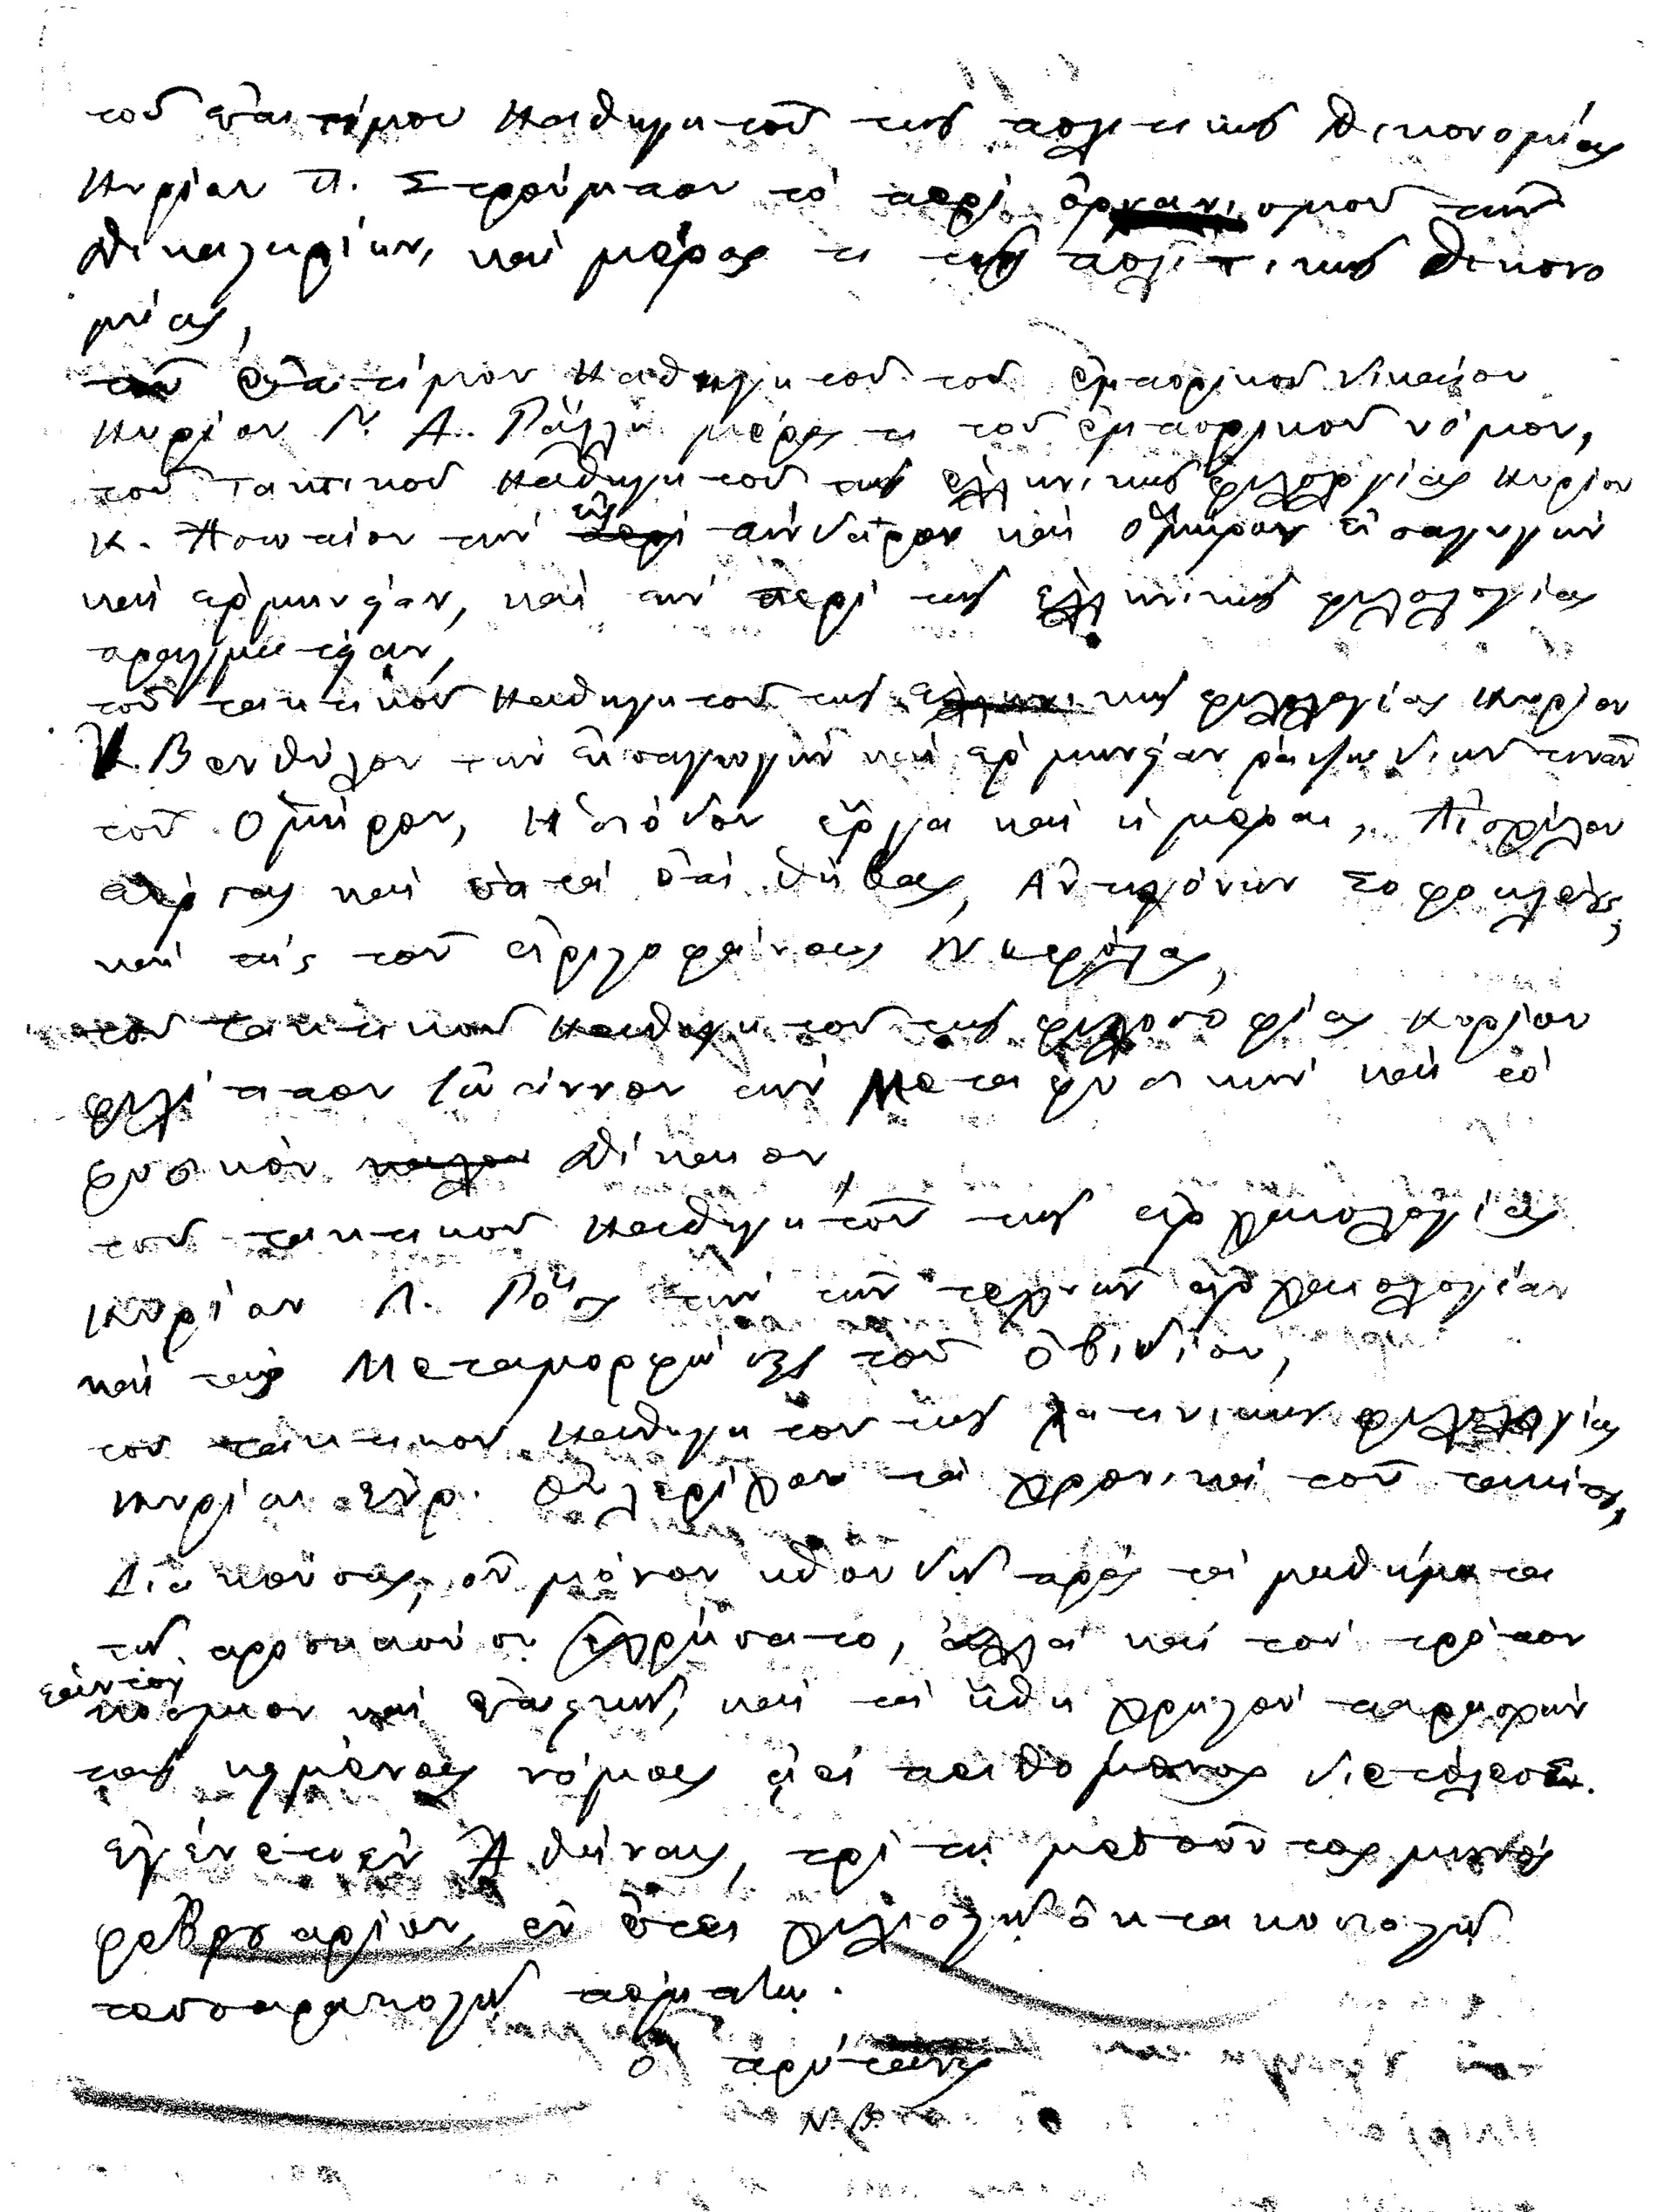 τοῦ ἐπιτίμου καθηγητοῦ τῆς πολιτικῆς Δικονομίας
Κυρίου Π. Στρούμπου τὸ περὶ ὀργανισμοῦ τῶν
Δικαστηρίων, καὶ μέρος τι τῆς πολιτικῆς Δικονο
μίας,
τοῦ ἐπιτίμου καθηγητοῦ τοῦ ἐμπορικοῦ δικαίου
Κυρίου Γ. Α. Ράλλη μέρος τι τοῦ ἐμπορικοῦ νόμου,
τοῦ τακτικοῦ καθηγητοῦ τῆς ἑλληνικῆς φιλολογίας κυρίου
Κ. Ἀσωπίου τὴν εἰς Πίνδαρον καὶ Ὅμηρον εἰσαγωγὴν
καὶ ἑρμηνείαν, καὶ τὴν περὶ τῆς ἑλληνικῆς φιλολογίας
πραγματείαν,
τοῦ τακτικοῦ καθηγητοῦ τῆς ἑλληνικῆς φιλολογίας κυρίου
Κ. Βενθύλου τὴν εἰσαγωγὴν καὶ ἑρμηνείαν ῥαψῳδιῶν τινῶν
τοῦ Ὁμήρου, Ἡσιόδου ἔργα καὶ ἡμέραι, Αἰσχύλου
Πέρσας καὶ ἑπτὰ ἐπὶ Θήβας, Ἀντιγόνην Σοφοκλέους,
καὶ τὰς τοῦ Ἀριστοφάνους Νεφέλας,
τοῦ τακτικοῦ καθηγητοῦ τῆς φιλοσοφίας κυρίου
Φιλίππου Ἰωάννου τὴν Μεταφυσικὴν καὶ τὸ
φυσικὸν Δίκαιον,
τοῦ τακτικοῦ καθηγητοῦ τῆς ἀρχαιολογίας
κυρίου Λ. Ρὸς τὴν τῶν τεχνῶν ἀρχαιολογίαν
καὶ τὰς Μεταμορφώσεις τοῦ Ὀβιδίου,
τοῦ τακτικοῦ καθηγητοῦ τῆς λατινικῆς φιλολογίας
κυρίου Ἑρρ. Οὐλερίχου τὰ χρονικὰ τοῦ Τακίτου,
Διακούσας, οὐ μόνον σπουδῇ πρὸς τὰ μαθήματα
τῇ προσηκούσῃ ἐχρήσατο, ἀλλὰ καὶ τὸν τρόπον
ἑαυτὸν
κόσμιον καὶ ἐπιεικῆ, καὶ τὰ ἤθη χρηστὸν παρασχὼν
τοῖς κειμένοις νόμοις ἀεὶ πειθόμενος διετέλεσεν.
Ἐγένετο ἐν Ἀθήναις, τρίτῃ μεσοῦντος μηνὸς
Φεβρουαρίου, ἐν ἔτει χιλιοστῷ ὀκτακοσιοστῷ
τεσσαρακοστῷ πέμπτῳ.
Ὁ πρύτανις
Ν. Β.